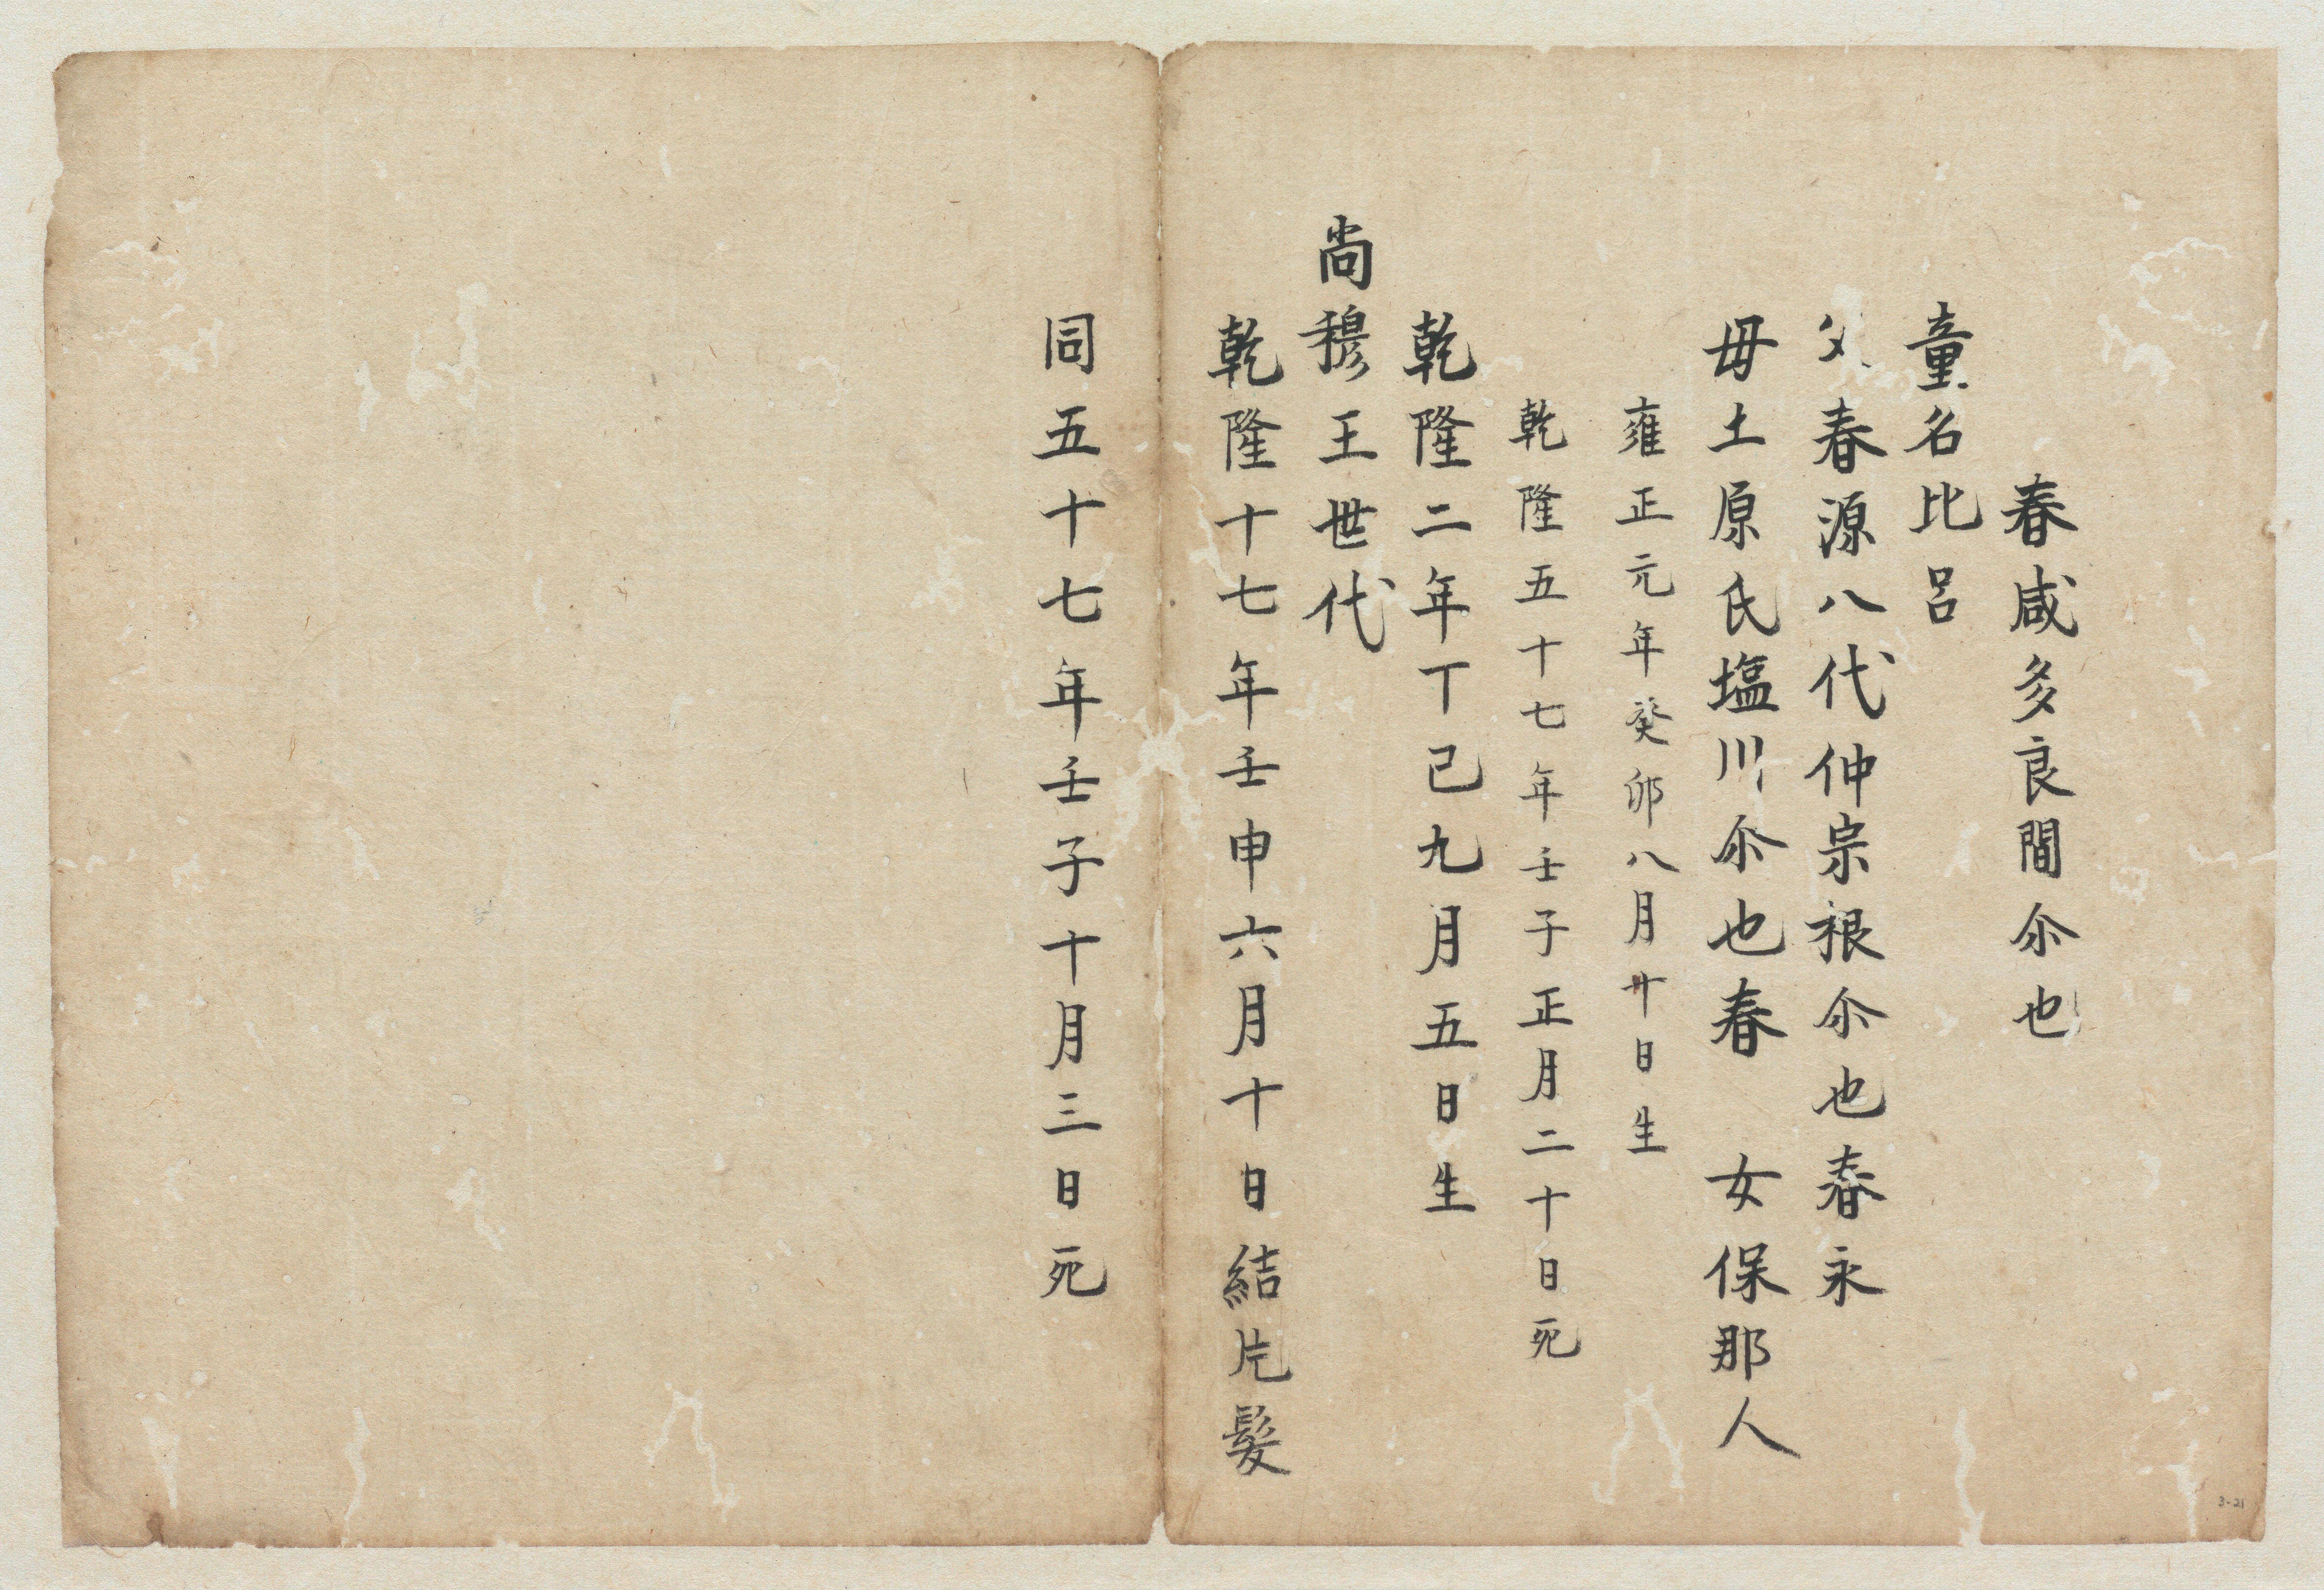 春咸多良間尒也
童名比呂
父春源八代仲宗根尒也春永
毋土原氏塩川尒也春 女保那人
雍正元年癸夘八月廿日生
乾隆五十七年壬子正月二十日死
乾隆二年丁巳九月五日生
尚穆王世代
乾隆十七年壬申六月十日結片髮
同五十七年壬子十月三日死
3-21